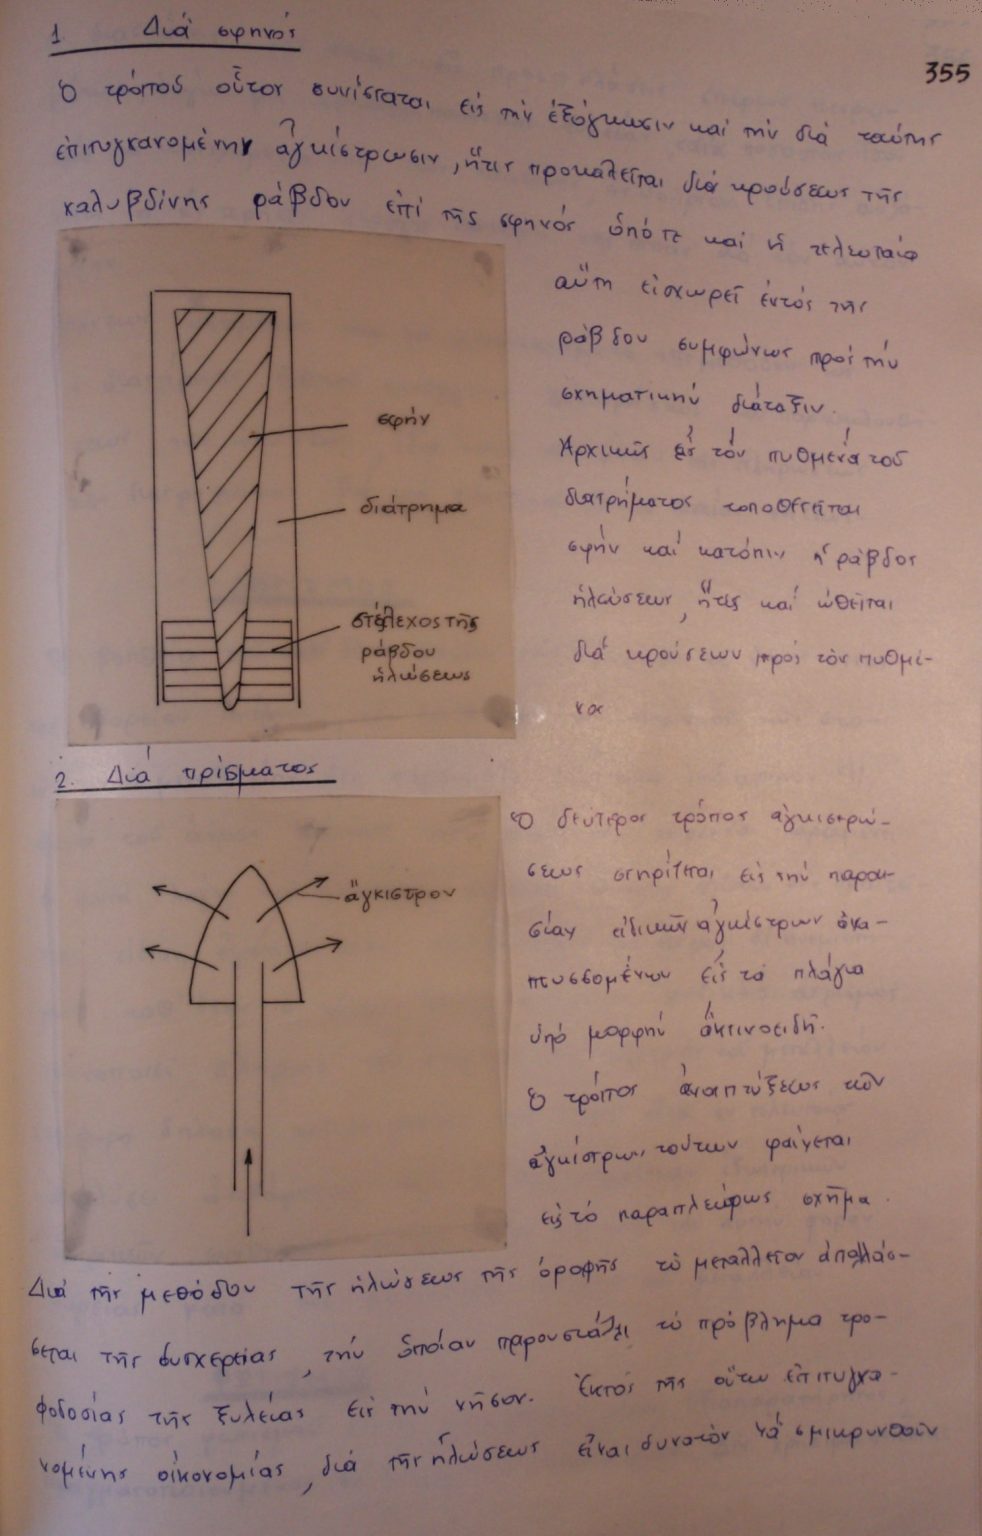 355
1 Διά σφηνός
Ὁ τρόπος οὗτος συνίσταται εἰς τήν ἐξόγκωσιν καί τήν διά ταύτης
ἐπιτυγχανομένην ἀγκίστρωσιν, ἥτις προκαλεῖται διά κρούσεως τῆς
χαλυβδίνης ράβδου ἐπί τῆς σφηνός ὁπότε καί ἡ τελευταία
αὕτη εἰσχωρεῖ ἐντός τῆς
ράβδου συμφώνως πρός τήν
σχηματικήν διάταξιν.
Ἀρχικῶς εἰς τόν πυθμένα τοῦ
διατρήματος τοποθετεῖται
σφήν καί κατόπιν ἡ ράβδος
ἡλώσεως, ἥτις καί ὠθεῖται
διά κρούσεων πρός τόν πυθμέ-
να
σφήν
διάτρημα
στέλεχος τῆς
ράβδου
ἡλώσεως
2. Διά πρίσματος
Ὁ δεύτερος τρόπος ἀγκιστρώ-
σεως στηρίζεται εἰς τήν παρου-
σίαν εἰδικῶν ἀγκίστρων ἀνα-
πτυσσομένων εἰς τά πλάγια
ὑπό μορφήν ἀκτινοειδῆ.
Ὁ τρόπος ἀναπτύξεως τῶν
ἀγκίστρων τούτων φαίνεται
εἰς τό παραπλεύρως σχῆμα.
ἄγκιστρον
Διά τῆς μεθόδου τῆς ἡλώσεως τῆς ὀροφῆς τό μεταλλεῖον ἀπαλλάσ-
σεται τῆς δυσχερείας, τήν ὁποίαν παρουσιάζει τό πρόβλημα τρο-
φοδοσίας τῆς ξυλείας εἰς τήν νῆσον. Ἐκτός τῆς οὕτω ἐπιτυγχα-
νομένης οἰκονομίας, διά τῆς ἡλώσεως εἶναι δυνατόν νά σμικρυνθοῦν